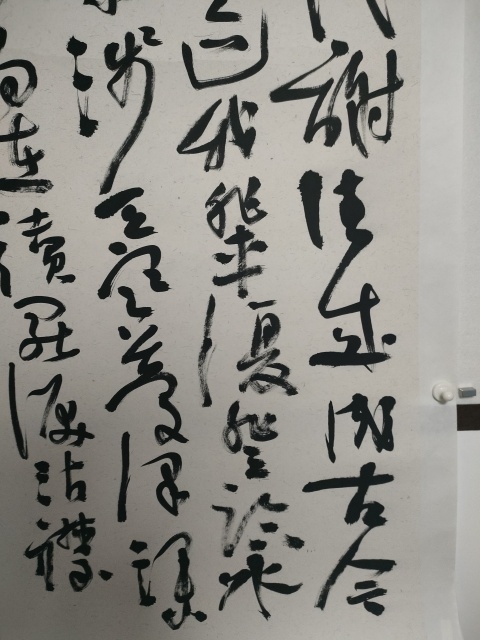 代謝往来成古今
迹我輩復登臨水
淺天寒夢澤深
尚在讀罷淚沾襟